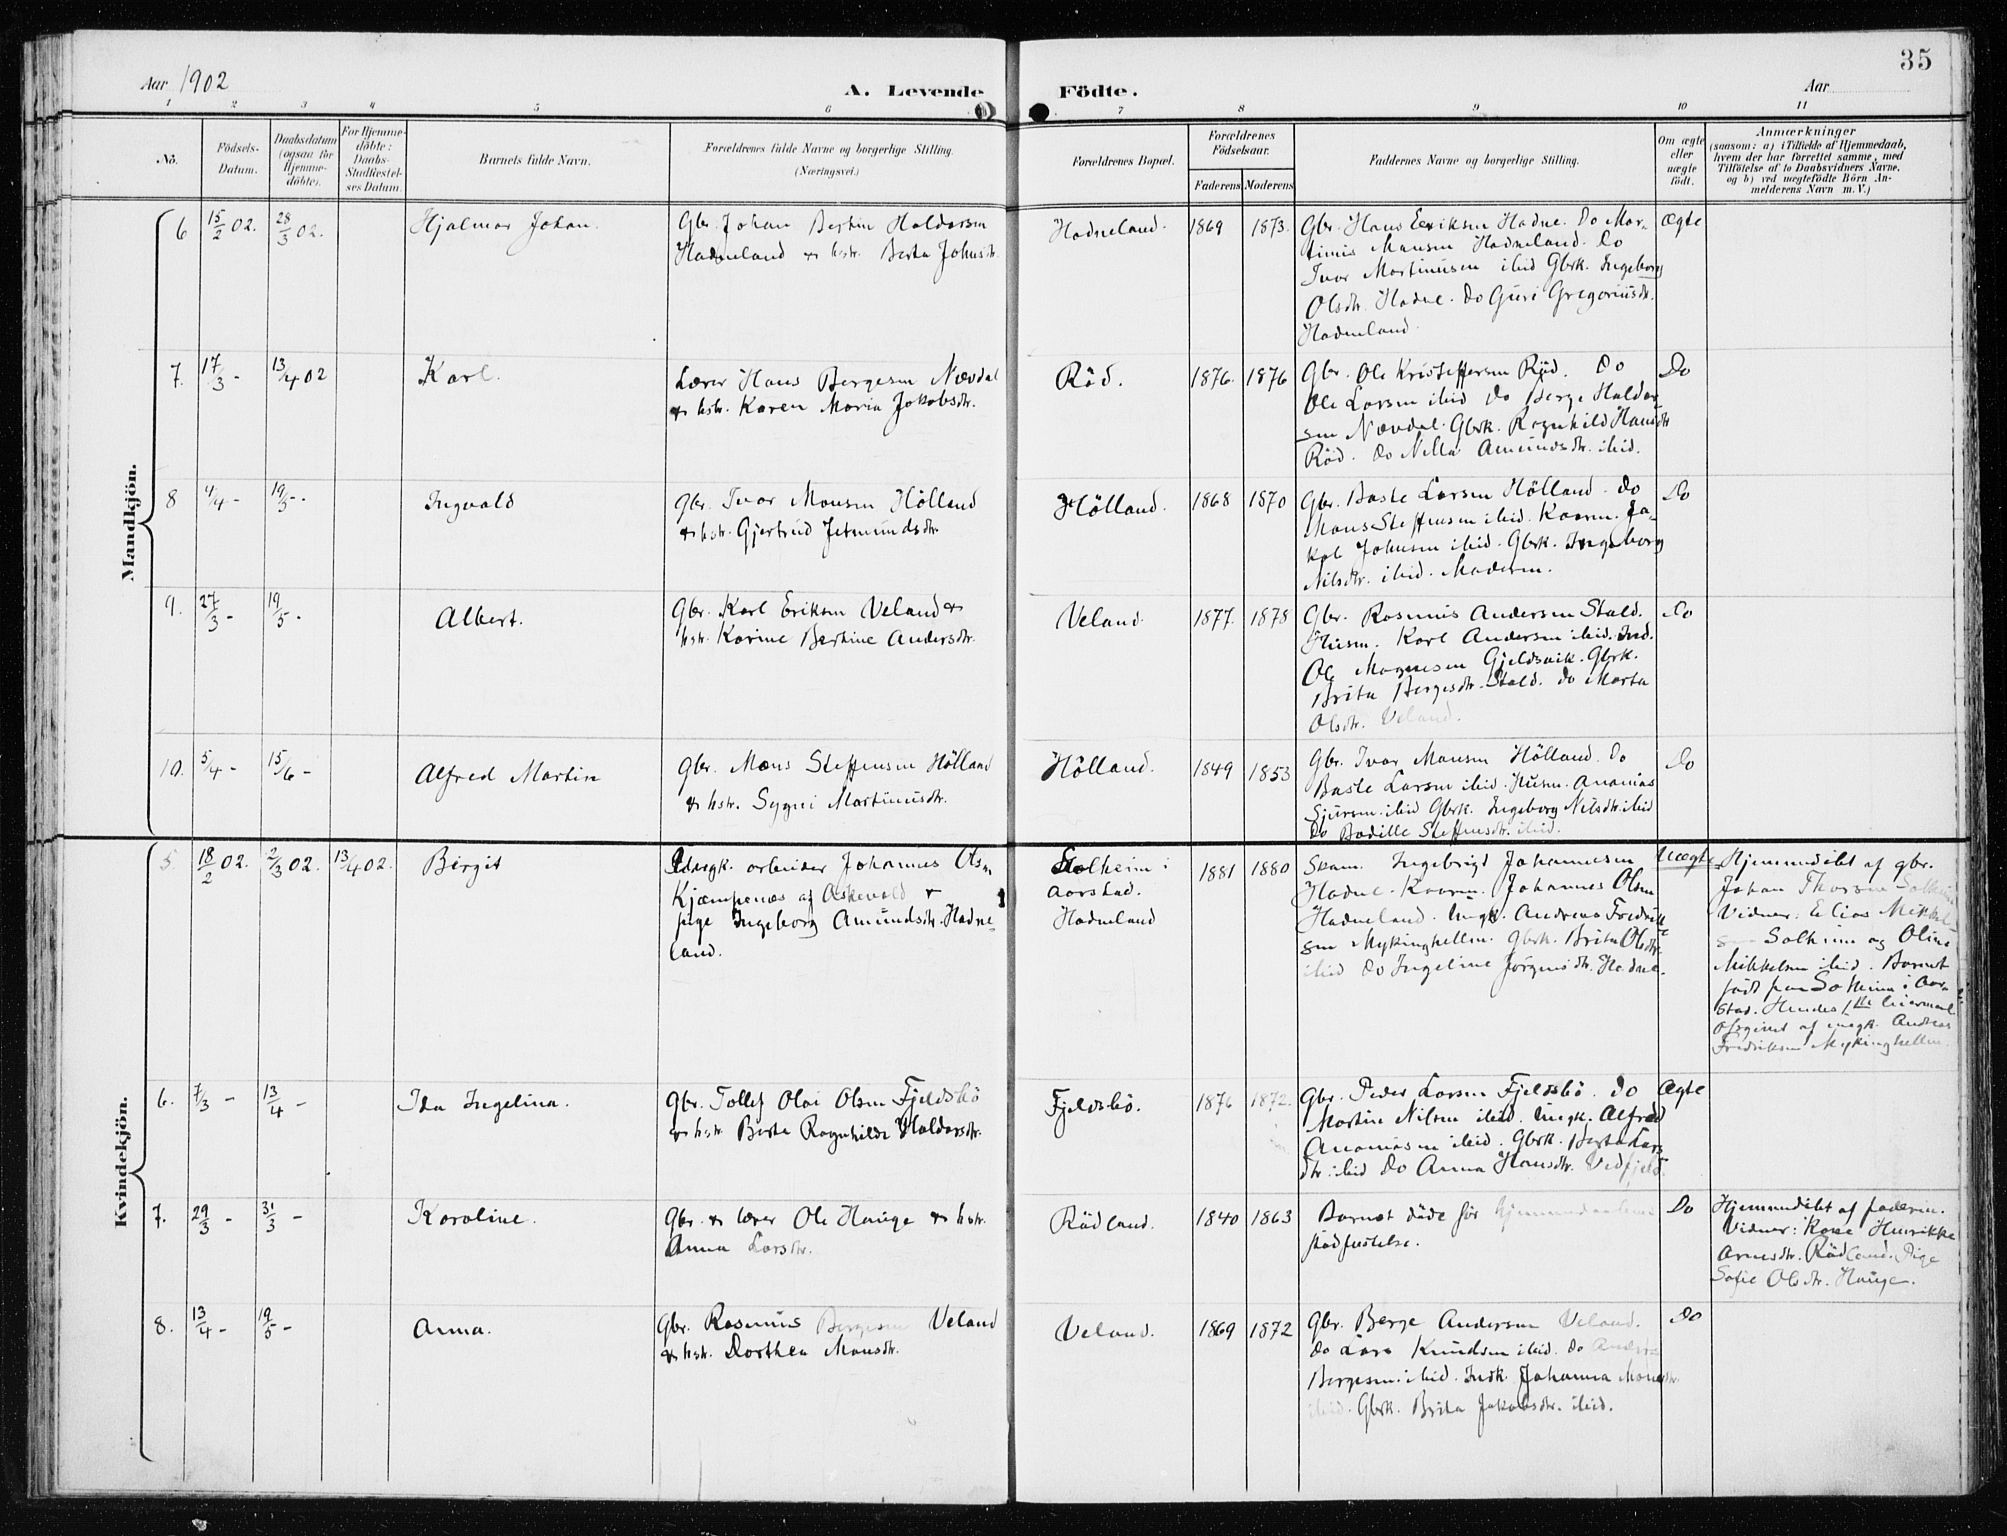 35
Aar 1902
A. Levende
Födte.
Aar
1 2 3 4 5 6 7 8 9 10 11
No.
Födsels-
Datum.
Daabsdatum
(ogsaa for
Hjemme-
döbte).
For Hjemme-
döbte:
Daabs-
Stadfæstel-
ses Datum.
Barnets fulde Navn.
Forældrenes fulde Navne og borgerlige Stilling.
(Næringsvei.)
Forældrenes Bopæl.
Forældrenes
Födselsaar.
Faderens Moderens
Faddernes Navne og borgerlige Stilling.
Om ægte
eller
uægte
födt.
Anmærkninger
(saasom: a) i Tilfælde af Hjemmedaab,
hvem der har forrettet samme, med
Tilföielse af to Daabsvidners Navne,
og b) ved uægtefödte Börn An-
melderens Navn m. V.)
Mandkjön.
6 15/2 02. 28/3 02. Hjalmar Johan.
Gbr. Johan Bertin Haldorsen
Hadneland & hstr. Berta Johnsdtr.
Hadneland. 1869 1873.
Gbr. Hans Eeriksen Hadne. Do Mar-
tinus Monsen Hadneland. Do
Ivar Martinusen ibid Gbrk. Ingeborg
Olsdtr. Hadne. Do Guri Gregoriusdtr.
Hadneland.
Ægte
7. 17/3 - 13/4 02 Karl.
Lærer Hans Bergesen Nævdal
& hstr. Karen Maria Jakobsdtr.
Röd. 1876. 1876
Gbr. Ole Kristoffersen Röd. Do
Ole Larsen ibid Do Berge Haldor-
sen Nævdal. Gbrk. Ragnhild Hansdtr
Röd. Do Nilla Amundsdtr. ibid.
Do
8 4/4 - 19/5 -. Ingvald
Gbr. Ivar Monsen Hölland
& hstr. Gjertrud Jetmundsdtr.
Hölland. 1868 1870
Gbr. Baste Larsen Hölland. Do
Mons Steffensen ibid. Kaarm. Ja-
kob Johnsen ibid. Gbrk. Ingeborg
Nilsdtr. ibid. Moderen.
Do
9. 27/3 - 19/5 - Albert.
Gbr. Karl Eriksen Veland &
hstr. Karine Bertine Andersdtr.
Veland. 1877. 1878
Gbr. Rasmus Andersen Stald.
Husm. Karl Andersen ibid. Ind.
Ole Magnesen Gjeldsvik. Gbrk.
Brita Bergesdtr. Stald. Do Marta
Olsdtr. Veland.
Do
10. 5/4 - 15/6 - Alfred Martin
Gbr. Mons Steffensen Hölland
& hstr. Sygni Martinusdtr.
Hölland. 1849 1853
Gbr. Ivar Monsen Hölland. Do
Baste Larsen ibid. Husm. Ananias
Sjursen ibid Gbrk. Ingeborg Nilsdtr. ibid
Do Bodille Steffensdtr. ibid.
Do
Kvindekjön.
5. 18/2 02. 2/3 02. 13/4 02. Birgit
arbeider Johannes Olsn
Kjæmpenæs af Askevold &
pige Ingeborg Amundsdtr. Hadne-
land.
Solheim i
Aarstad.
Hadneland
1881 1880
Skom. Ingebrigt Johannesen
Hadne. Kaarm. Johannes Olsen
Hadneland. Ungk. Andreas Fredrik-
sen Mykinghellen. Gbrk. Brita Olsdtr.
ibid Do Ingeline Jörgensdtr. Hadne.
Uægte
Hjemmedöbt af gbr.
Johan Solheim
Vidner: Elias Mikkel-
sen Solheim og Oline
Mikkelsen ibid. Barnet
födt paa Solheim i Aar-
stad. Hendes 1ste leiermaal
Opgivet af ungk. Andreas
Fredriksen Mykinghellen.
6. 7/3 - 13/4 - Ida Ingelina.
Gbr. Tollef Olai Olsen Fjeldsbö
& hstr. Berta Ragnhilde Haldorsdtr.
Fjeldsbö. 1876 1872.
Gbr. Peder Larsen Fjeldsbö. Do
Martin Nilsen ibid. Ungk. Alfred
Ananiasen ibid. Gbrk. Berta Lars-
dtr. ibid Do Anna Hansdtr. Vedfjeld.
Ægte
7. 29/3 - 31/3 - Karoline.
Gbr. & lærer Ole Hauge & hstr.
Anna Larsdtr.
Rödland. 1840 1863
Barnet döde för hjemmedaabens
stadfæstelse.
Do
Hjemmedöbt af faderen.
Vidner: Kone Henrikke
Arnesdtr. Rödland. Pige
Sofie Olsdtr. Hauge.
8. 13/4 - 19/5 - Anna.
Gbr. Rasmus Bergesen Veland
& hstr. Dorthea Monsdtr.
Veland. 1869 1872
Gbr. Berge Andersen Veland.
Do Lars Knudsen ibid. Do Anders
Bergesen ibid. Indk. Johanna Monsdtr.
ibid. Gbrk. Brita Jakobsdtr. ibid.
Do